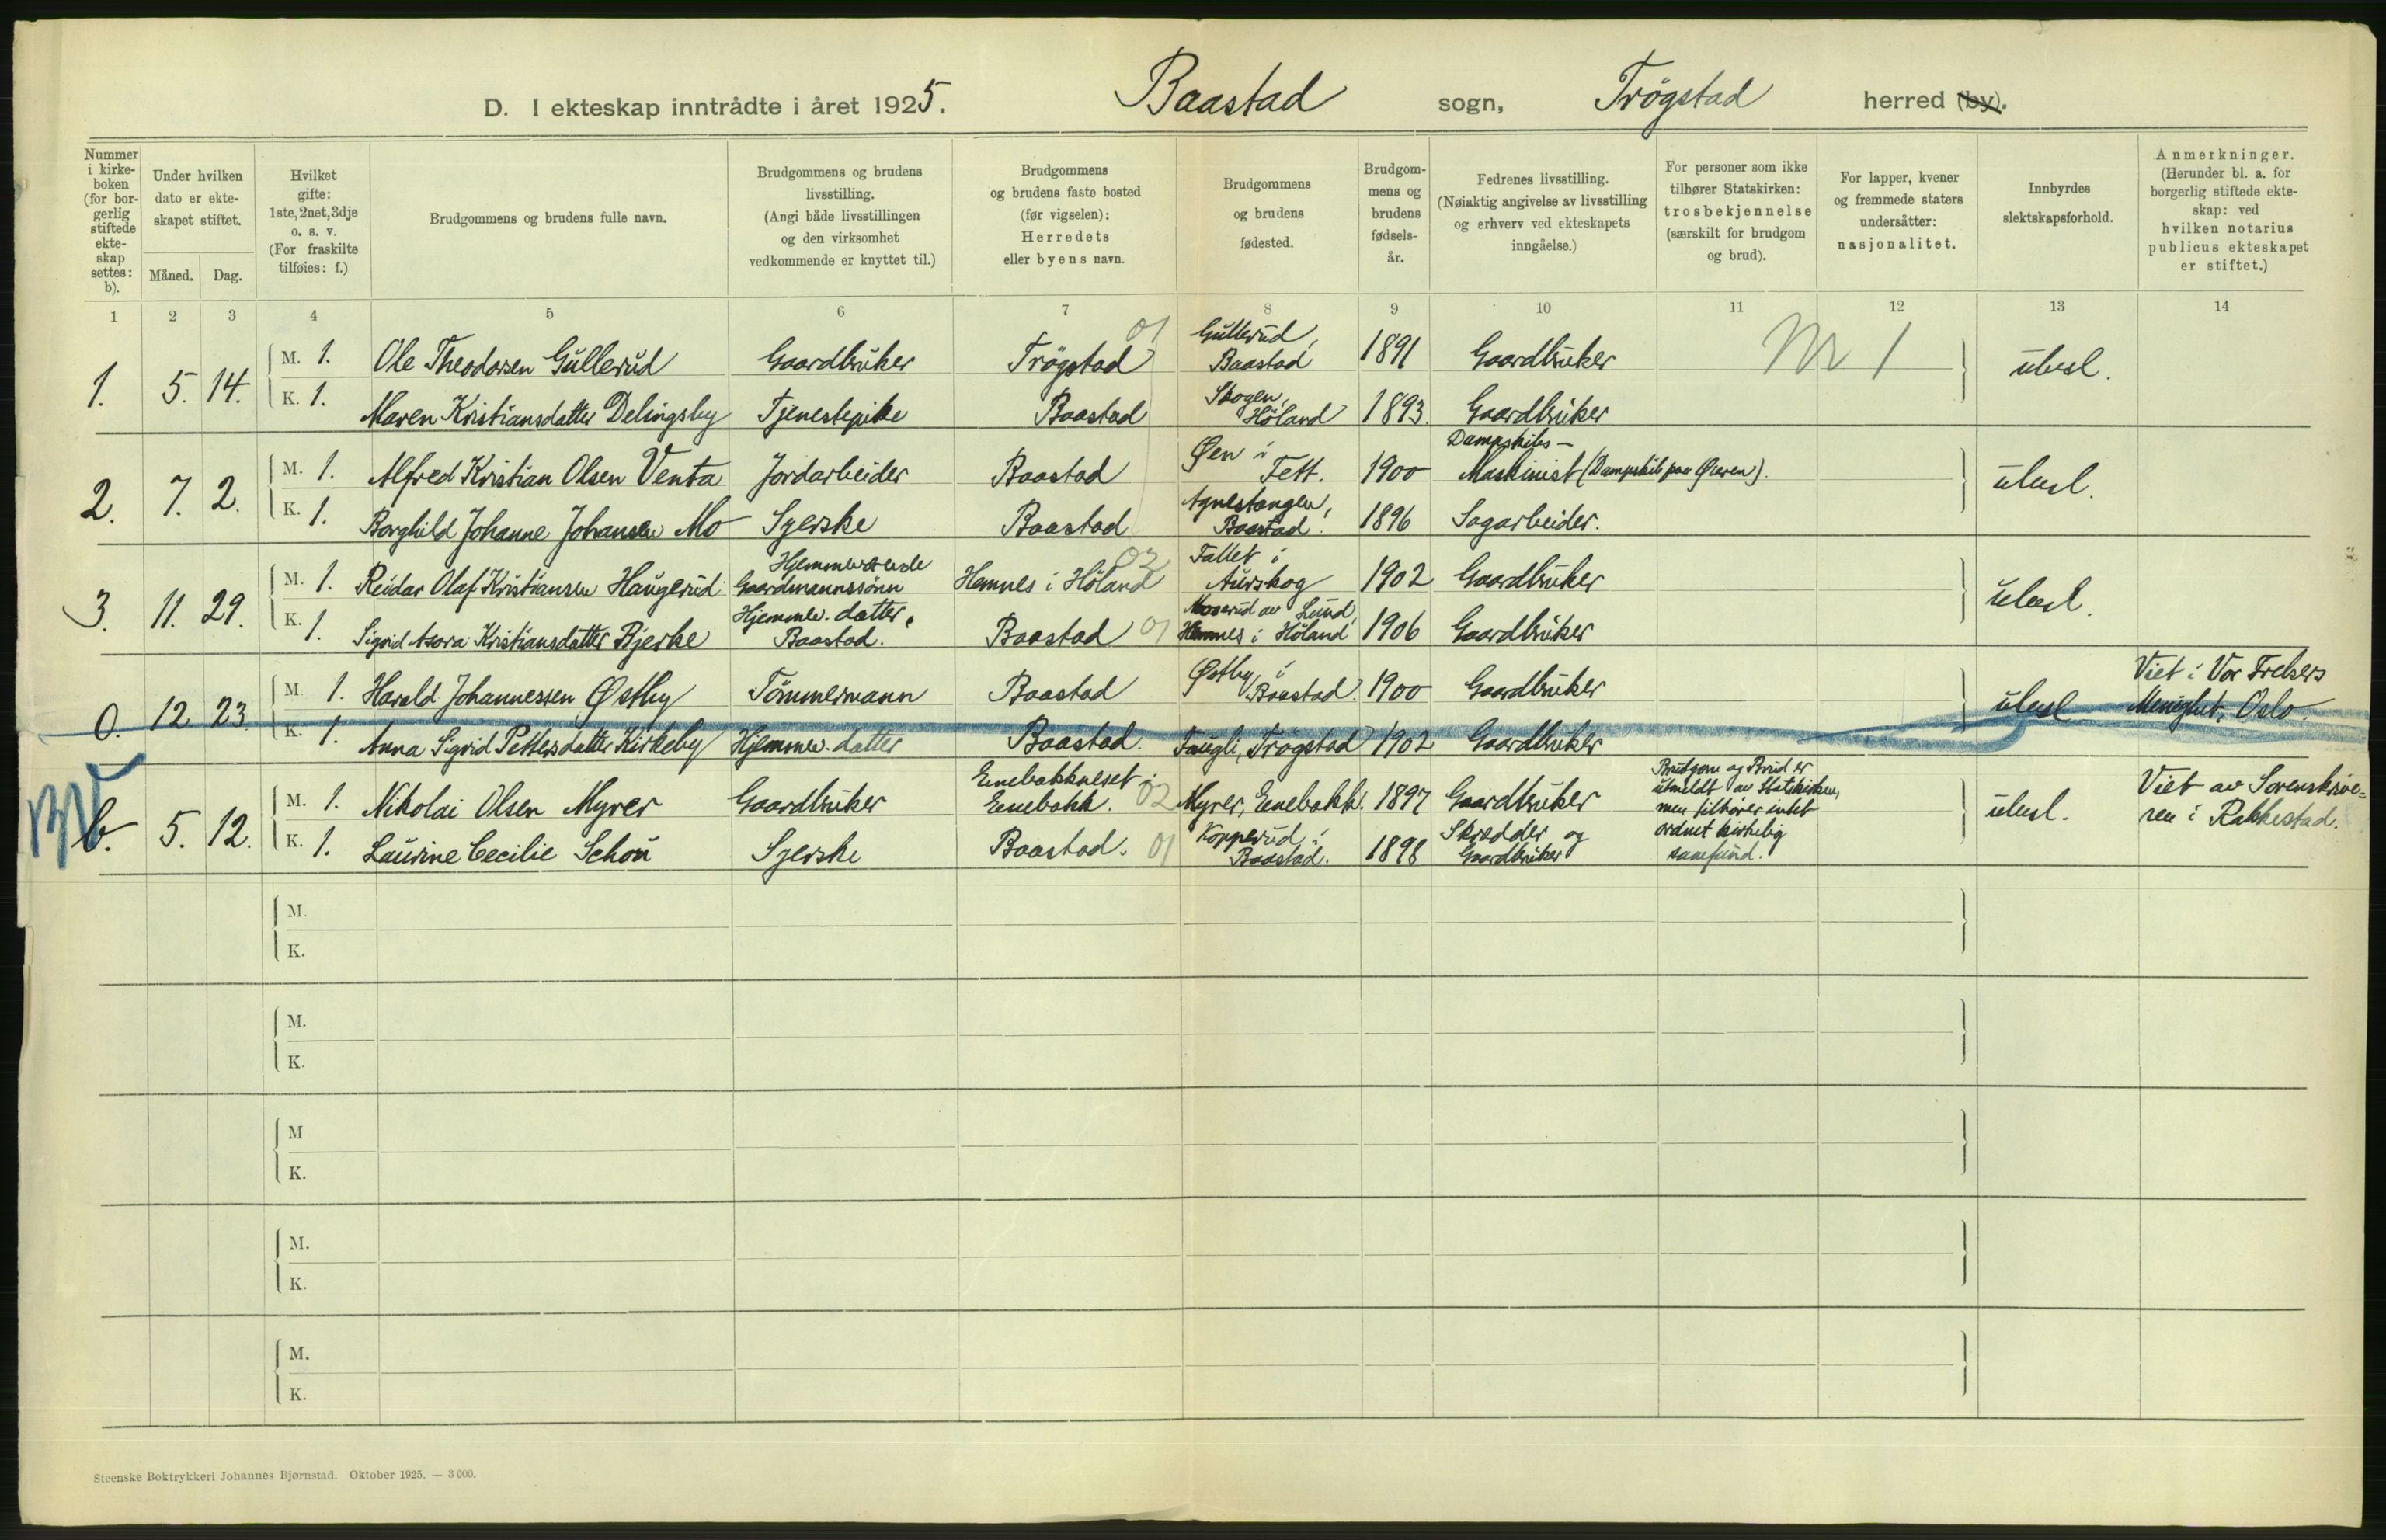 D. I ekteskap inntrådte i året 1925. Baastad sogn, Trögstad herred (by).
Nummer i kirke-boken (for bor-gerlig stiftede ekte-skap settes: b).
Under hvilken dato er ekte-skapet stiftet.
Måned. Dag.
Hvilket gifte: 1ste, 2net, 3dje o. s. v. (For fraskilte tilføies: f.)
Brudgommens og brudens fulle navn.
Brudgommens og brudens livsstilling. (Angi både livsstillingen og den virksomhet vedkommende er knyttet til.)
Brudgommens og brudens faste bosted (før vigselen): Herredets eller byens navn.
Brudgommens og brudens fødested.
Brudgom-mens og brudens fødsels-år.
Fedrenes livsstilling. (Nøiaktig angivelse av livsstilling og erhverv ved ekteskapets inngåelse.)
For personer som ikke tilhører Statskirken: trosbekjennelse (særskilt for brudgom og brud).
For lapper, kvener og fremmede staters undersåtter: nasjonalitet.
Innbyrdes slektskapsforhold.
Anmerkninger. (Herunder bl. a. for borgerlig stiftede ekte-skap: ved hvilken notarius publicus ekteskapet er stiftet.)
1 2 3 4 5 6 7 8 9 10 11 12 13 14
1. 5. 14. M. 1. Ole Theodorsen Gullerud Gaardbruker Trögstad 01 Gullerud, Baastad 1891 Gaardbruker Nr 1 ubesl.
K. 1. Maren Kristiansdatter Delingsby Tjenestepike Baastad Skogen, Høland 1893. Gaardbruker
2. 7. 2. M. 1. Alfred Kristian Olsen Venta Jordarbeider Baastad Øen i Fett. 1900 Dampskibs-Maskinist (Dampskib paa Øieren). ubesl.
K. 1. Borghild Johanne Johansen Mo Syerske Baastad Agnestangen, Baastad. 1896 Sagarbeider.
3. 11. 29. M. 1. Reidar Olaf Kristiansen Haugerud Hjemmeværende Gaardmannssönn Hemnes i Höland 02 Fallet i Aurskog 1902 Gaardbruker ubesl.
K. 1. Sigrid Asora Kristiansdatter Bjerke Hjemmev. datter. Baastad. Baastad 01 Moserud av Lund, Hemnes i Höland 1906 Gaardbruker
0. 12 23. M. 1. Harald Johannessen Østby Tömmermann Baastad Østby i Baastad. 1900 Gaardbruker ubesl. Viet i Vor Frelsers Menighet, Oslo.
K. 1. Anna Sigrid Pettersdatter Kirkeby Hjemmev. datter Baastad. Faugli, Trögstad 1902 Gaardbruker
b. 5. 12. M. 1. Nikolai Olsen Myrer Gaardbruker Enebakkneset i Enebakk. 02 Myrer, Enebakk. 1897 Gaardbruker Brudgom og Brud er utmeldt av Statskirken, men tilhører intet ordnet kirkelig samfund. ubesl. Viet av Sorenskrive=ren i Rakkestad.
K. 1. Laurine Cecilie Schou Syerske Baastad. 01 Kopperud i Baastad. 1898 Skredder og Gaardbruker
M.
K.
M.
K.
M
K.
M.
K.
M.
K.
Steenske Boktrykkeri Johannes Bjørnstad. Oktober 1925. — 3 000.